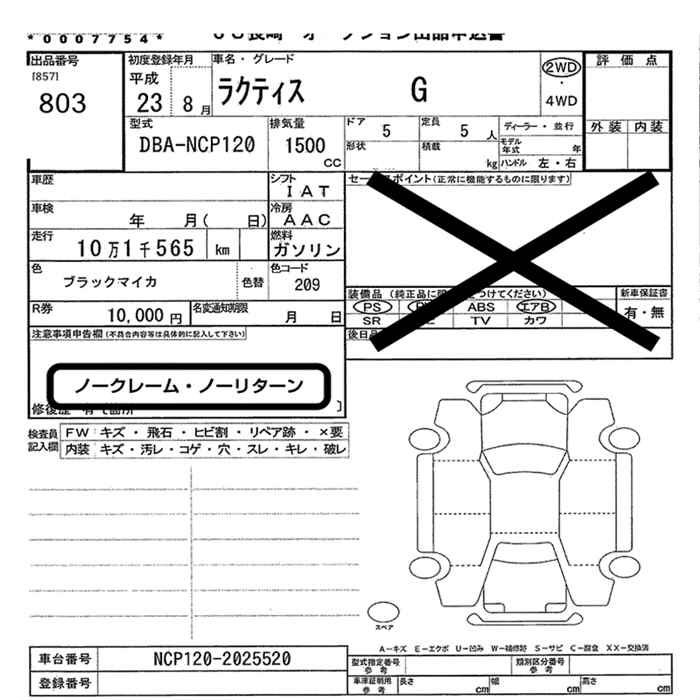 *0007754*
出品番号
[857]
803
初度登録年月
平成
23 8月
車名・グレード
ラクティス G
2WD
・
4WD
評価点
外装 内装
型式
DBA-NCP120
排気量
1500
CC
ドア 5
定員 5 人
ディーラー・並行
形状
積載 kg
モデル年式 年
ハンドル 左・右
車歴
シフト
IAT
車検
年 月( 日)
冷房
AAC
走行
10万1千565 km
燃料
ガソリン
色
ブラックマイカ
色替
色コード
209
R券
10,000 円
名変通知期限
月 日
注意事項申告欄(不具合内容等は具体的に記入して下さい)
ノークレーム・ノーリターン
(正常に機能するものに限ります)
装備品
PS
ABS エアB
SR
TV カワ
新車保証書
有・無
検査員記入欄
FW キズ・飛石・ヒビ割・リペア跡・×要
内装 キズ・汚レ・コゲ・穴・スレ・キレ・破レ
スペア
A-キズ E-エクボ U-凹み W-補修跡 S-サビ C-腐食 XX-交換済
車台番号 NCP120-2025520
登録番号
型式指定番号
参考
類別区分番号
参考
車庫証明用
参考
長さ cm 幅 cm 高さ cm